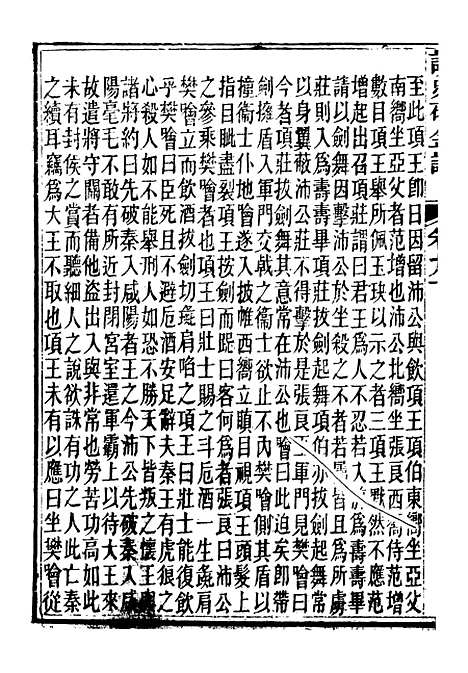 至此項王卽日因留沛公與飲項王項伯東嚮坐亞父
南嚮坐亞父者范增也沛公北嚮坐張良西嚮侍范增
數目項王舉所佩玉玦以示之者三項王默然不應范
增起出召項莊謂曰君王爲人不忍若入前爲壽壽畢
請以劍舞因擊沛公於坐殺之不者若屬皆且爲所虜
莊則入爲壽壽畢項莊拔劍起舞項伯亦拔劍起舞常
以身翼蔽沛公莊不得擊於是張良至軍門見樊噲曰
今者項莊拔劍舞其意常在沛公也噲曰此迫矣卽帶
劍擁盾入軍門交戟之衞士欲止不內樊噲側其盾以
撞衞士仆地噲遂入披帷西嚮立瞋目視項王頭髮上
指目眦盡裂項王按劍而跽曰客何爲者張良曰沛公
之參乘樊噲者也項王曰壯士賜之斗卮酒一生彘肩
樊噲立而飲酒拔劍切彘肩啗之項王曰壯士能復飲
乎樊噲曰臣死且不避卮酒安足辭夫秦王有虎狼之
心殺人如不能舉刑人如恐不勝天下皆叛之懷王與
諸將約曰先破秦入咸陽者王之今沛公先破秦入咸
陽毫毛不敢有所近封閉宮室還軍霸上以待大王來
故遣將守關者備他盜出入與非常也勞苦功高如此
未有封侯之賞而聽細人之說欲誅有功之人此亡秦
之續耳竊爲大王不取也項王未有以應曰坐樊噲從